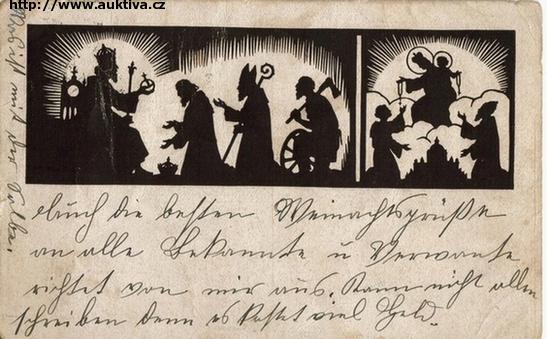 http://www.auktiva.cz
ist mit der
Auch die besten Weinachtsgrüße
an alle Bekannte u Verwante
richtet von mir aus. Kann nicht allen
schreiben denn es kostet viel Geld.